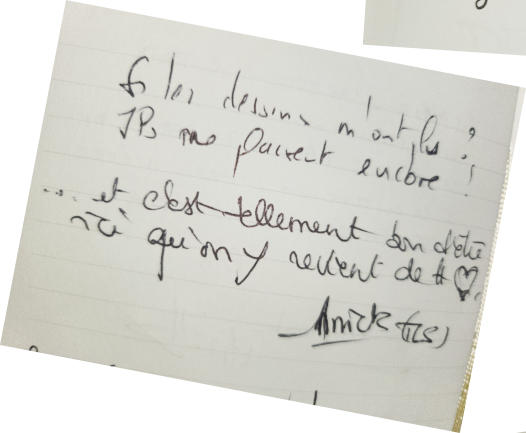 Si les dessins m'ont plu ?
Ils me plaisent encore !
... et c'est tellement bon d'être
ici qu'on y revient de tt ♡.
Anick (75)